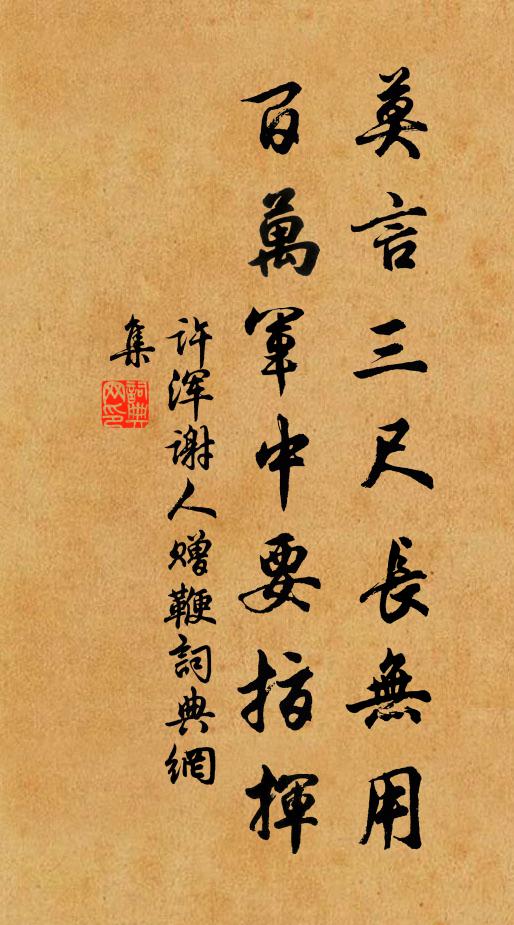 莫言三尺長無用
百萬軍中要指揮
许渾谢人赠鞭詞典網
集
詞典網印